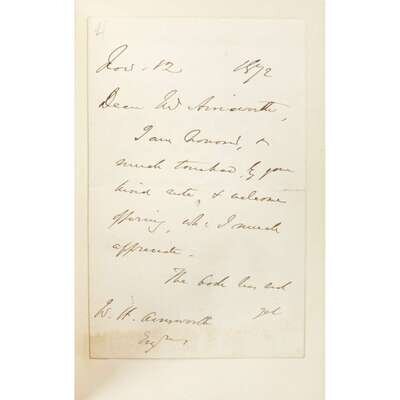 Nov. 12 1872
Dear Mr Ainsworth,
I am honored, &
much touched, by your
kind note, & welcome
offering, whc I much
appreciate.
The book has not
yet
W. H. Ainsworth
Esqre